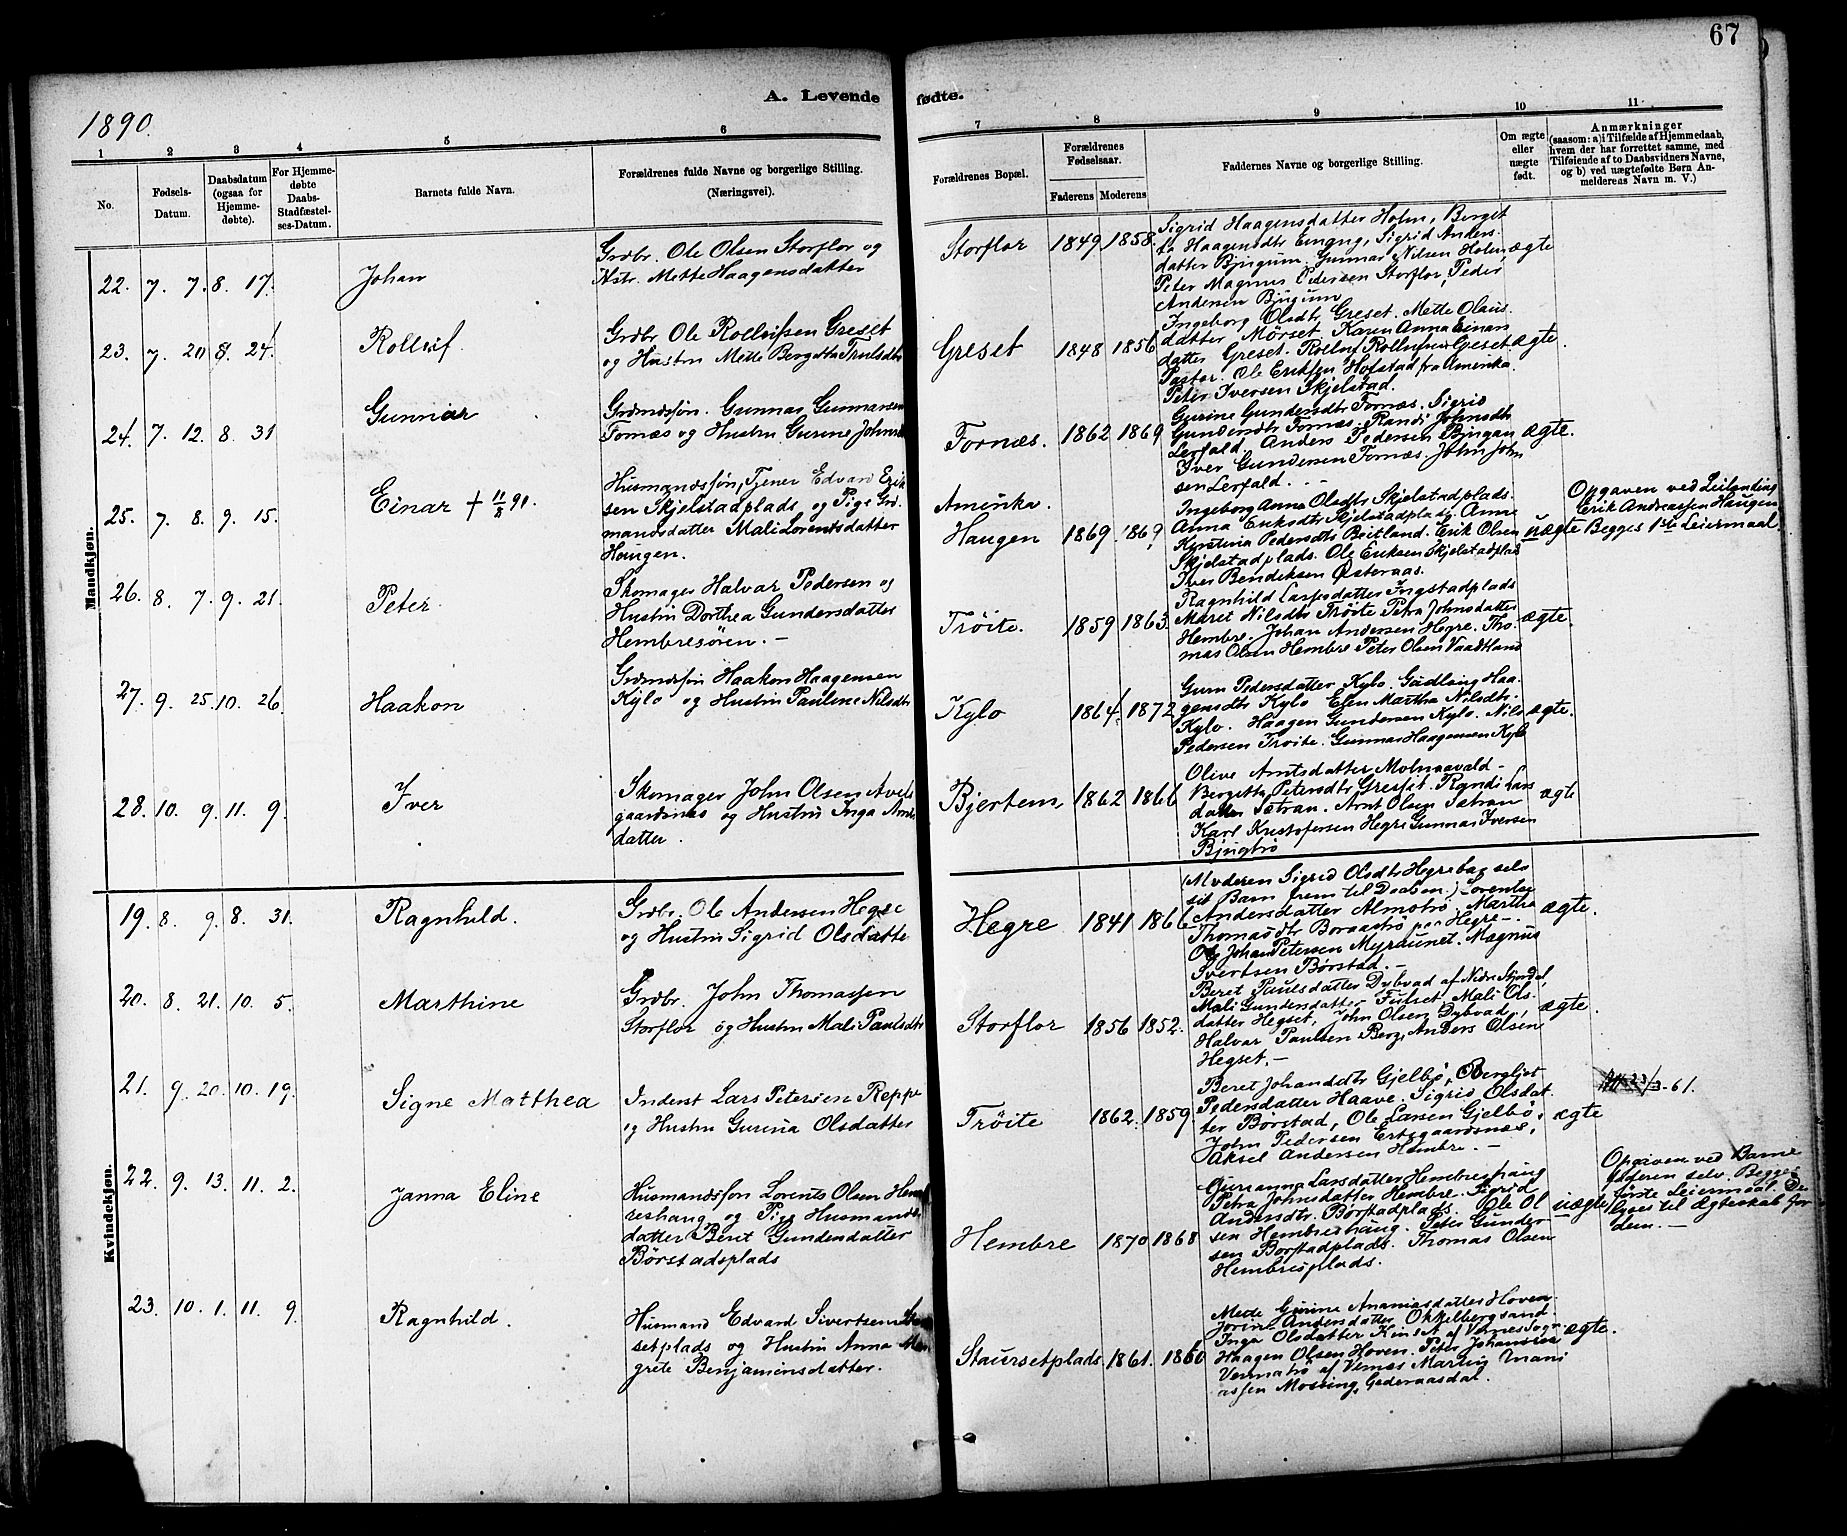 67
A. Levende fødte.
1890.
1 2 3 4 5 6 7 8 9 10 11
No.
Fødsels-
Datum.
Daabsdatum
(ogsaa for
Hjemme-
døbte).
For Hjemme-
døbte
Daabs-
Stadfæstel-
ses-Datum.
Barnets fulde Navn.
Forældrenes fulde Navne og borgerlige Stilling.
(Næringsvei).
Forældrenes Bopæl.
Forældrenes
Fødselsaar.
Faderens Moderens
Faddernes Navne og borgerlige Stilling.
Om ægte
eller
uægte
født.
Anmærkninger
(saasom: a) i Tilfælde af Hjemmedaab,
hvem der har forrettet samme, med
Tilføiende af to Daabsvidners Navne,
og b) ved uægtefødte Børn An-
melderens Navn m. V.)
Mandkjøn.
22. 7. 7. 8. 17. Johan
Grdbr. Ole Olsen Storflor og
Hstr. Mette Haagensdatter
Storflor 1849 1858.
Sigrid Haagensdatter Holm, Berget
ta Haagensdtr Eingng, Sigrid Anders
datter Bjugum. Gunnar Nilsen Holm, ægte
Peter Magnus Pedersen Storflor, Peder
Andersen Bjugum
23. 7. 20 8. 24. Rolleif
Grdbr Ole Rolleifsen Greset
og Hustru Mette Bergitta Trulsdtr
Greset 1848 1856
Ingeborg Olsdtr Greset. Mette Olaus
datter Mørset. Karen Anna Einars
datter Greset. Rolleif Rolleifsen Greset ægte.
Pastor. Ole Eriksen Hofstad fra Amerika.
Peter Iversen Skjelstad.
24. 7. 12. 8. 31 Gunnar
Grdmdssøn. Gunnar Gunnarsen
Fornæs og Hustru Gurine Johns
Fornæs. 1862 1869
Gurine Gundersdtr Fornæs. Sigrid
Gundersdtr Fornæs. Randi Johnsdtr
Lerfald. Anders Pedersen Bjugan ægte.
Iver Gundersen Fornæs. John John
sen Lerfald.
25. 7. 8. 9. 15. Einar + 11/2 91.
Husmandssøn, Tjener Edvard Erik
sen Skjelstadplads og Pige Grd.
mandsdatter Mali Lorentsdatter
Haugen.
Amerika.
Haugen 1869. 1869
Ingeborg Anna Olsdtr Skjelstadplads.
Anna Eriksdtr Skjelstadplads. Anne
Kjerstina Pedersdtr Beitland. Erik Olsen uægte
Skjelstadplads. Ole Eriksen Skjelstadplads
Iver Bendiksen Østeraas.
Opgaven ved Leilænding
Erik Andreassen Haugen
Begges 1ste Leiermaal.
26. 8. 7. 9. 21. Peter.
Skomager Halvar Pedersen og
Hustru Dorthea Gundersdatter
Hembresøren. —
Trøite. 1859 1863.
Ragnhild Larsdatter Ingstadplads
Maret Nilsdtr Trøite Petra Johnsdatter
Hembre. Johan Andersen Hegre. Tho- ægte.
mas Olsen Hembre Peter Olsen Vaadtland
27. 9. 25. 10. 26. Haakon
Grdmdssøn Haakon Haagensen
Kylo og Hustru Pauline Nilsdtr
Kylo 1864. 1872
Guru Pedersdatter Kylo. Gudlaug Haa-
gensdtr Kylo Elen Martha Nilsdtr.
Kylo. Haagen Gundersen Kylo. Nils ægte.
Pedersen Trøite. Gunnar Haagensen Kylo
28. 10. 9. 11. 9. Iver
Skomager John Olsen Avels
gaardsnæs og Hustru Inga Arnts
datter.
Bjertem 1862 1866
Olive Arntsdatter Molmaavald-
Bergitta Petersdtr Gresset. Randi Lars
datter Ystran. Arnt Olsen Ystran ægte
Karl Kristofersen Hegre Gunnar Iversen
Bjugtrø
Kvindekjøn.
19. 8. 9. 8. 31. Ragnhild.
Grdbr. Ole Andersen Hegre
og Hustru Sigrid Olsdatte
Hegre 1841 1866
(Moderen Sigrid Olsdtr Hegre bar selv
sit Barn frem til Daaben.) Lorentse
Andersdatter Almotrø. Martha ægte.
Thomasdtr Boraastrø paa Hegre —.
Ole Johan Petersen Myraunet. Magnus
Sivertsen Børstad. —
20. 8. 21. 10. 5. Marthine
Grdbr. John Thomassen
Storflor og Hustru Mali Paulsdtr
Storflor 1856 1852.
Beret Paulsdatter Dybvad af Nedre Stjørdal,
Mali Gundersdatter Fulset, Mali Ols-
datter Hegset, John Olsen Dybvad, ægte.
Halvar Paulsen Berg, Anders Olsen
Hegset. —
21. 9. 20. 10. 19. Signe Matthea
Inderst Lars Petersen Reppe
og Hustru Gurina Olsdatter
Trøite 1862. 1859.
Beret Johansdtr Gjelbø, Bergljot
Pedersdatter Haave. Sigrid Olsdat
ter Børstad, Ole Larsen Gjelbø, ægte
John Pedersen Ertzgaardsnæs,
Aksel Andersen Hembre. —
23/3-61.
22. 9. 13. 11. 2. Janna Eline
Husmandssøn Lorents Olsen Hemb
reshaug og Pige Husmands
datter Beret Gundersdatter
Børstadsplads
Hembre 1870 1868
Gurianna Larsdatter Hembreshaug
Petra Johnsdatter Hembre. Sigrid
Andersdtr. Børstadplads. Ole Ol uægte
sen Hembreshaug. Peter Gunder
sen Børstadplads. Thomas Olsen
Hembresplads.
Opgiven ved Barne
faderen selv. Begges
første Leiermaal. De
lyses til Ægteskab for
dem. —
23. 10. 1. 11. 9. Ragnhild.
Husmand Edvard Sivertsen
setplads og Hustru Anna Mar
grete Benjaminsdatter.
Staursetplads. 1861. 1860
Mette Gurine Ananiasdatter Hoven.
Jorin Andersdatter Okkelbergsand.
Inga Olsdatter Kinset af Vernes Sogn ægte.
Haagen Olsen Hoven. Peter Johansen
Vermatrø af Vernes Martin Anani
assen Mossing, Gederaasdal.